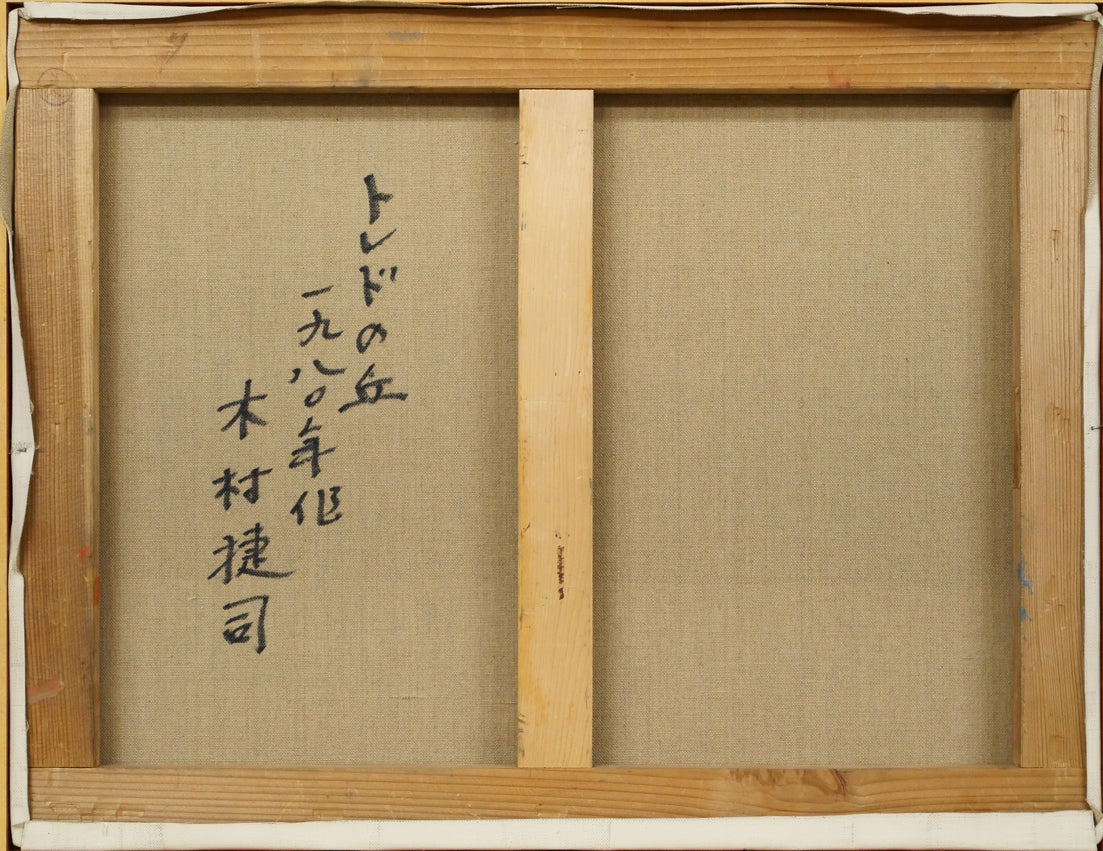 トレドの丘
一九八〇年作
木村捷司